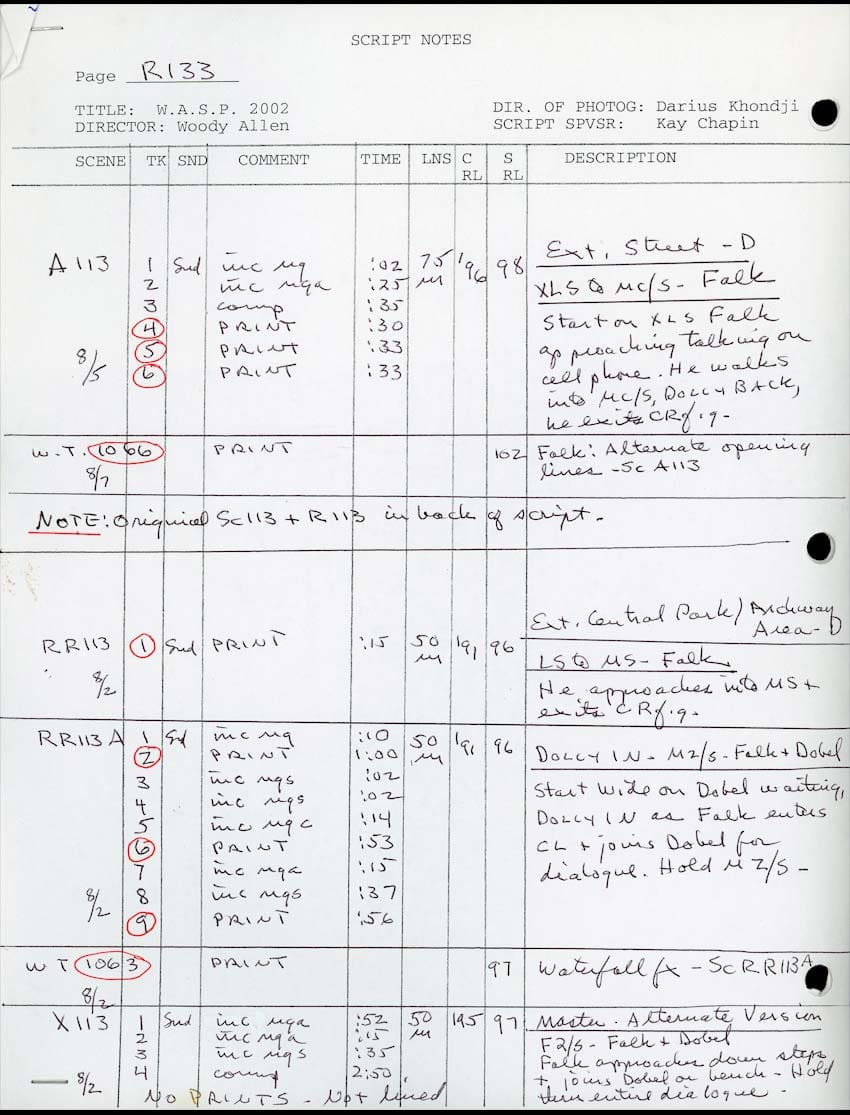 SCRIPT NOTES
Page R133
TITLE: W.A.S.P. 2002
DIR. OF PHOTOG: Darius Khondji
DIRECTOR: Woody Allen
SCRIPT SPVSR: Kay Chapin
SCENE TK SND COMMENT TIME LNS C RL S RL DESCRIPTION
A113 1 Snd inc ng :02 75 m 196 98 Ext. Street - D
2 inc nga :25
XLS to MC/S - Falk
3 comp :35
4 PRINT :30
5 PRINT :33
6 PRINT :33
8/5
Start on XLS Falk
approaching talking on
cell phone. He walks
into MC/S, DOLLY BACK,
he exits CRfg.
W.T. 1066 PRINT 102 Falk: Alternate opening
8/7 lines - Sc A113
NOTE: Original Sc113 + R113 in back of script.
Ext. Central Park / Archway
Area - D
RR113 1 Snd PRINT :15 50 m 191 96
LS to MS - Falk
8/2
He approaches into MS +
exits CRfg.
RR113A 1 Sd inc ng :10 50 m 191 96 DOLLY IN - M2/S - Falk + Dobel
2 PRINT 1:00
3 inc ngs :02
4 inc ngs :02
5 inc ngc :14
6 PRINT :53
7 inc nga :15
8 inc ngs :37
9 PRINT :56
8/2
Start wide on Dobel waiting,
DOLLY IN as Falk enters
CL + joins Dobel for
dialogue. Hold M2/S -
WT 1063 PRINT 97 Waterfall fx - Sc RR113A
8/2
X113 1 Snd inc nga :52 50 m 195 97 Master. Alternate Version
2 inc nga :15 F2/S - Falk + Dobel
3 inc ngs :35 Falk approaches down steps
4 comp 2:50 + joins Dobel on bench - Hold
8/2 NO PRINTS - Not lined thru entire dialogue -